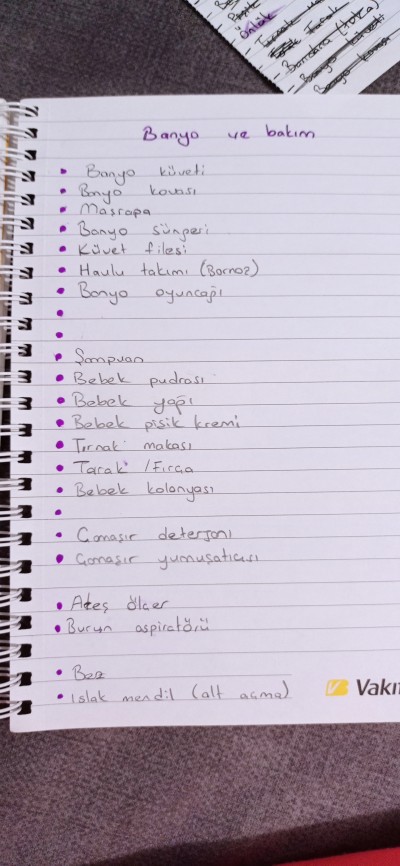 Önlük
Bandana (tuka)
Banyo küveti
Banyo kovası
Banyo ve bakım
• Banyo küveti
• Banyo kovası
• Maşrapa
• Banyo süngeri
• Küvet filesi
• Havlu takımı (Bornoz)
• Banyo oyuncağı
•
•
• Şampuan
• Bebek pudrası
• Bebek yağı
• Bebek pişik kremi
• Tırnak makası
• Tarak /Fırça
• Bebek kolonyası
•
• Çamaşır deterjanı
• Çamaşır yumuşatıcısı
• Ateş ölçer
• Burun aspiratörü
• Bez
• Islak mendil (alt açma)
Vakı